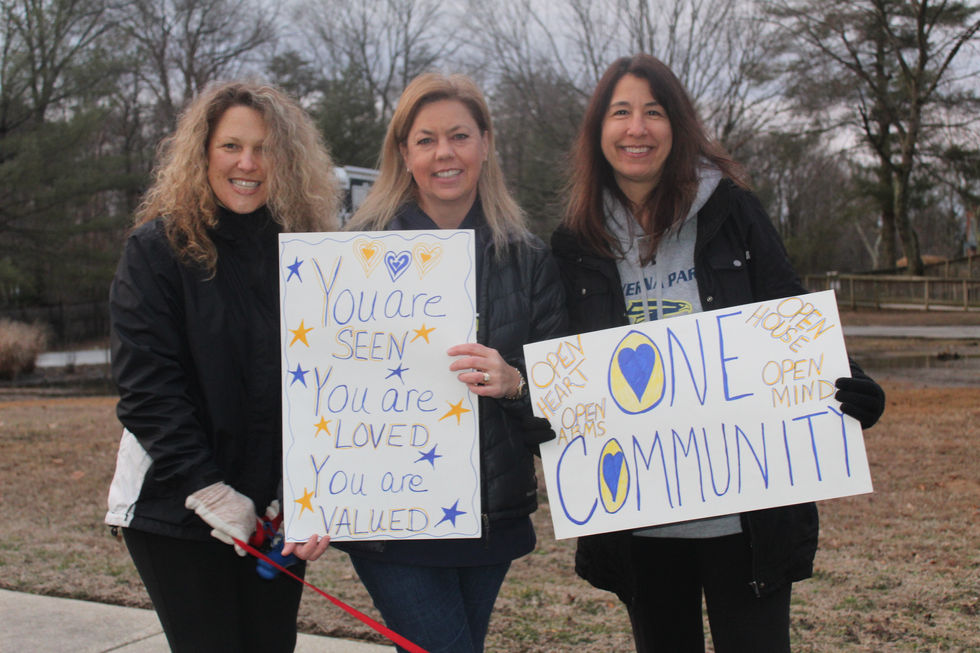 You are
SEEN
You are
LOVED
You are
VALUED
VERNA PAR
OPEN
HEART
OPEN
ARMS
ONE
COMMUNITY
OPEN
HOUSE
OPEN
MIND